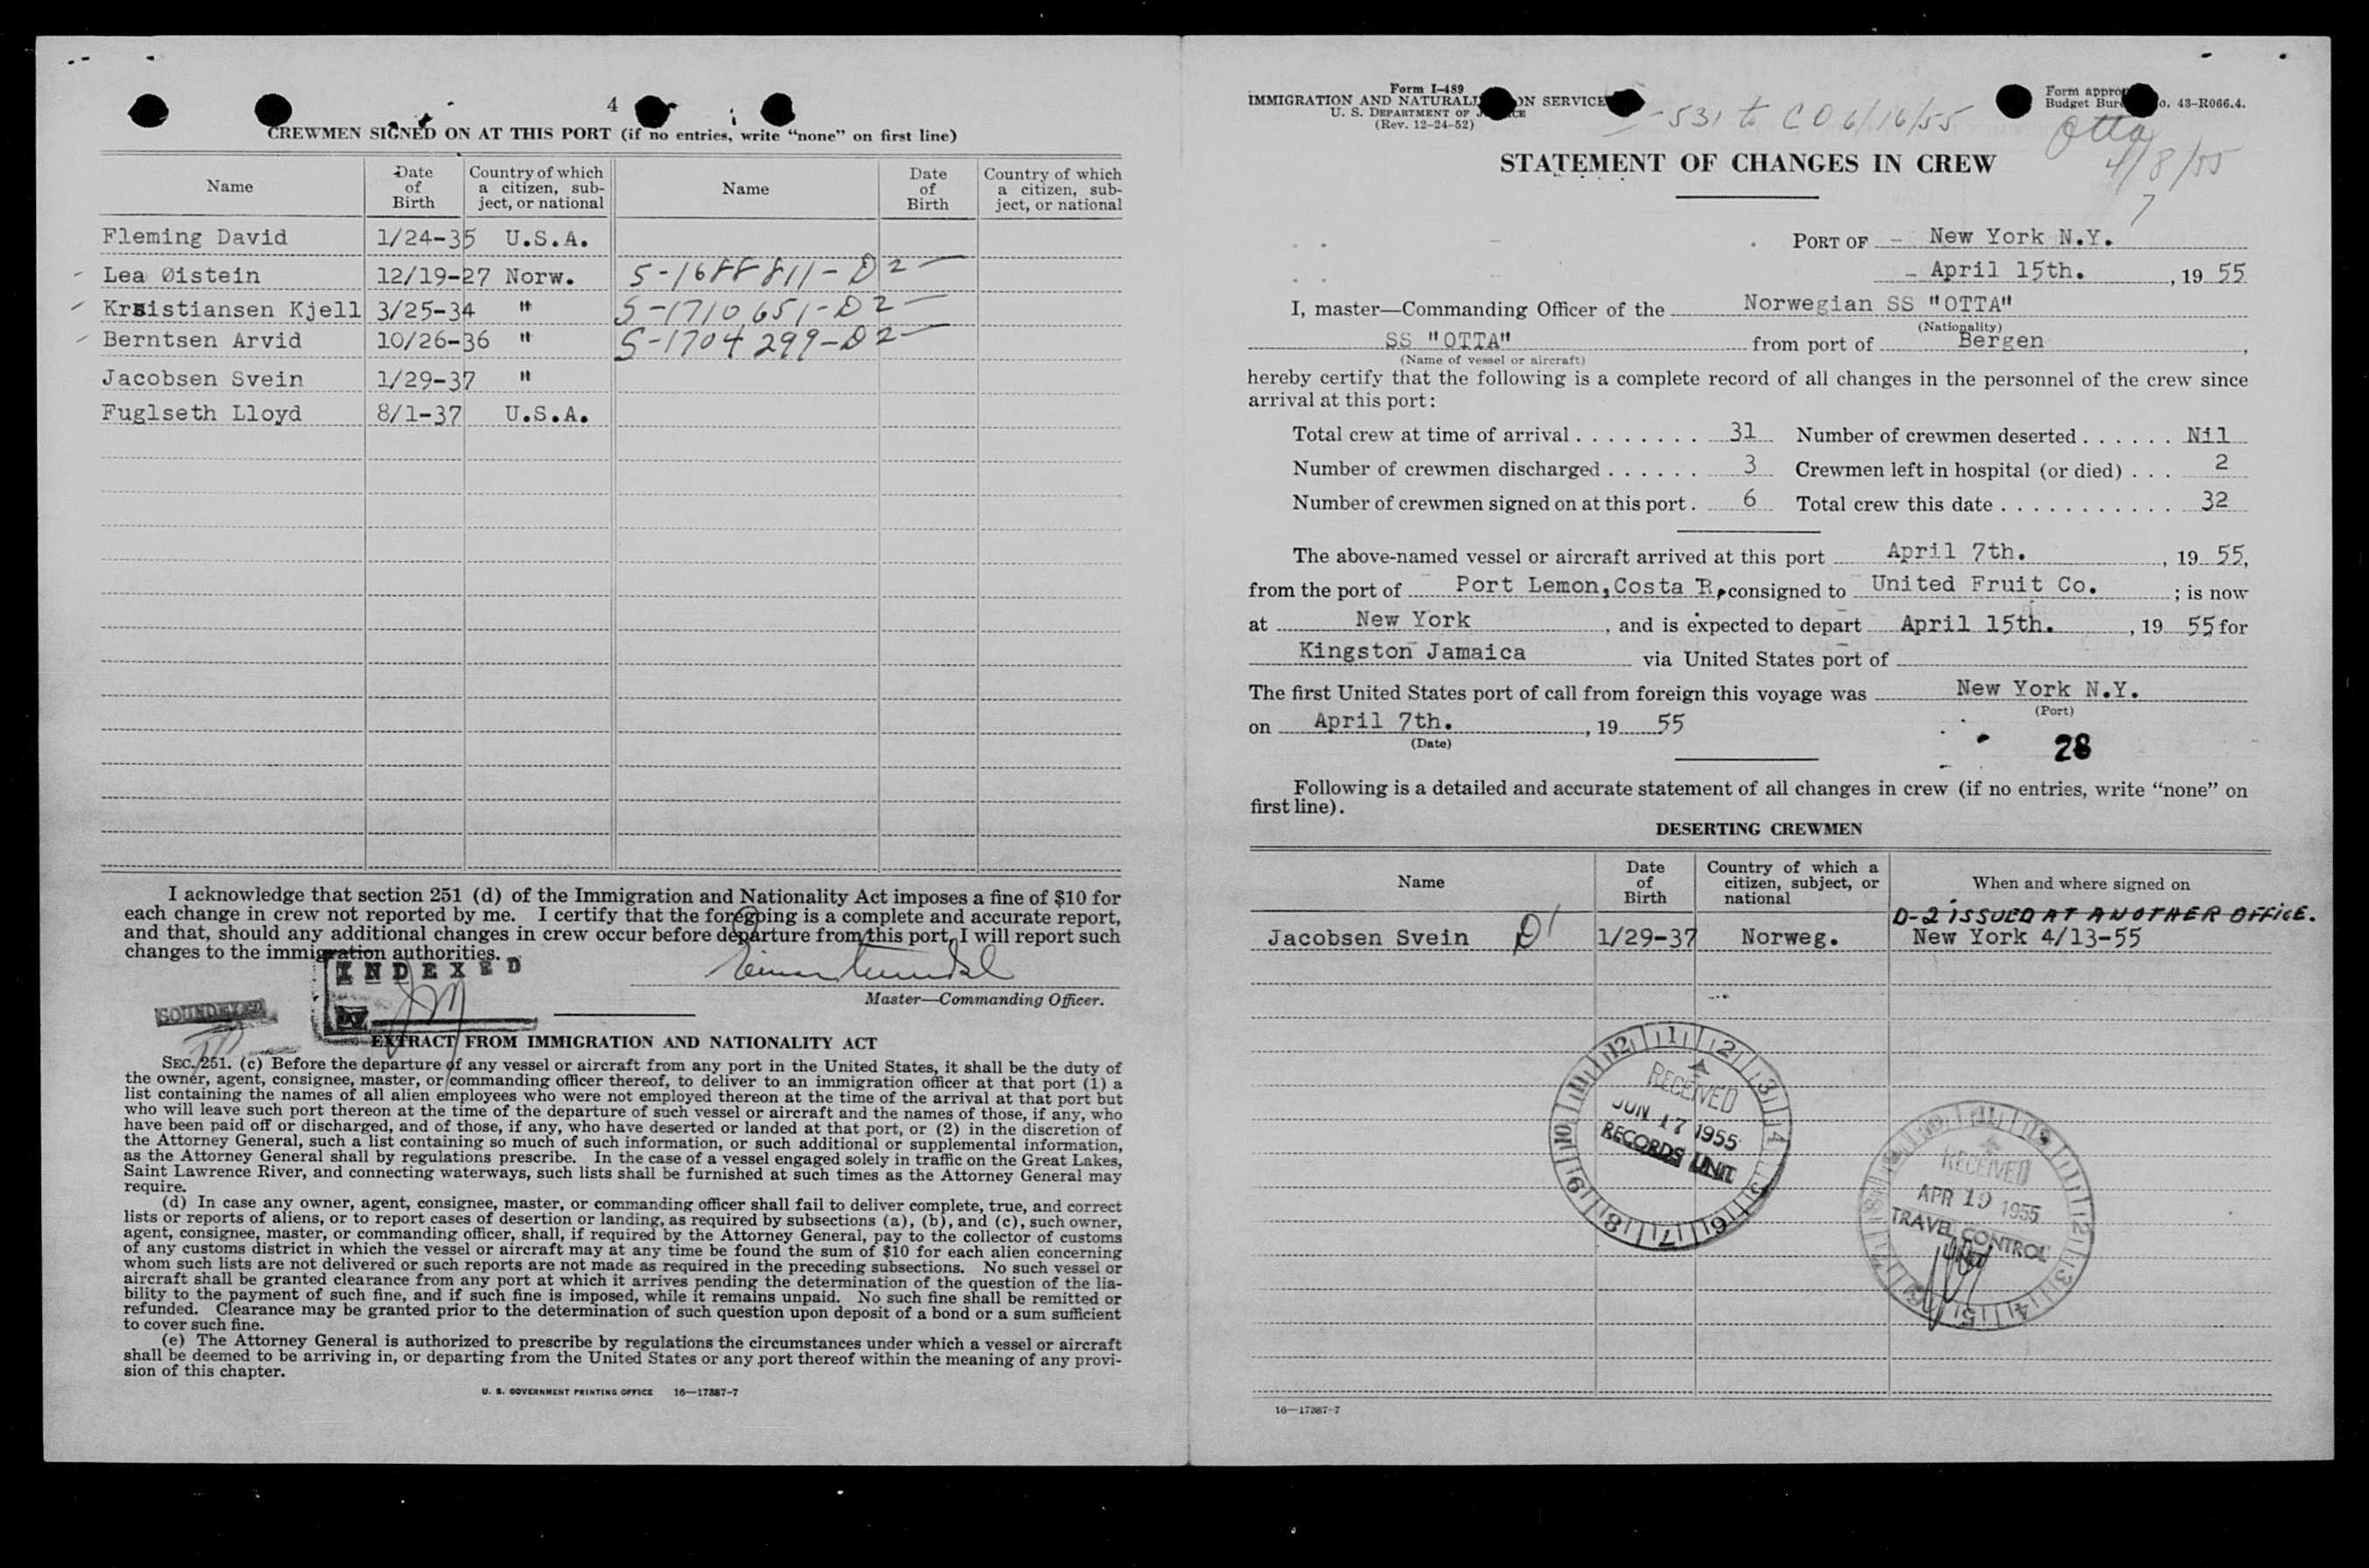 4
CREWMEN SIGNED ON AT THIS PORT (if no entries, write “none” on first line)
Name Date of Birth Country of which a citizen, sub-ject, or national Name Date of Birth Country of which a citizen, sub-ject, or national
Fleming David 1/24-35 U.S.A.
Lea Øistein 12/19-27 Norw. S-1688811-D2
Kristiansen Kjell 3/25-34 " S-1710651-D2
Berntsen Arvid 10/26-36 " S-1704299-D2
Jacobsen Svein 1/29-37 "
Fuglseth Lloyd 8/1-37 U.S.A.
I acknowledge that section 251 (d) of the Immigration and Nationality Act imposes a fine of $10 for
each change in crew not reported by me. I certify that the foregoing is a complete and accurate report,
and that, should any additional changes in crew occur before departure from this port, I will report such
changes to the immigration authorities.
INDEXED
Master—Commanding Officer.
SOUNDEXED
BY
EXTRACT FROM IMMIGRATION AND NATIONALITY ACT
SEC. 251. (c) Before the departure of any vessel or aircraft from any port in the United States, it shall be the duty of
the owner, agent, consignee, master, or commanding officer thereof, to deliver to an immigration officer at that port (1) a
list containing the names of all alien employees who were not employed thereon at the time of the arrival at that port but
who will leave such port thereon at the time of the departure of such vessel or aircraft and the names of those, if any, who
have been paid off or discharged, and of those, if any, who have deserted or landed at that port, or (2) in the discretion of
the Attorney General, such a list containing so much of such information, or such additional or supplemental information,
as the Attorney General shall by regulations prescribe. In the case of a vessel engaged solely in traffic on the Great Lakes,
Saint Lawrence River, and connecting waterways, such lists shall be furnished at such times as the Attorney General may
require.
(d) In case any owner, agent, consignee, master, or commanding officer shall fail to deliver complete, true, and correct
lists or reports of aliens, or to report cases of desertion or landing, as required by subsections (a), (b), and (c), such owner,
agent, consignee, master, or commanding officer, shall, if required by the Attorney General, pay to the collector of customs
of any customs district in which the vessel or aircraft may at any time be found the sum of $10 for each alien concerning
whom such lists are not delivered or such reports are not made as required in the preceding subsections. No such vessel or
aircraft shall be granted clearance from any port at which it arrives pending the determination of the question of the lia-
bility to the payment of such fine, and if such fine is imposed, while it remains unpaid. No such fine shall be remitted or
refunded. Clearance may be granted prior to the determination of such question upon deposit of a bond or a sum sufficient
to cover such fine.
(e) The Attorney General is authorized to prescribe by regulations the circumstances under which a vessel or aircraft
shall be deemed to be arriving in, or departing from the United States or any port thereof within the meaning of any provi-
sion of this chapter.
U. S. GOVERNMENT PRINTING OFFICE 16—17387-7
Form I-489
IMMIGRATION AND NATURALI ON SERVICE
U. S. DEPARTMENT OF J CE
(Rev. 12-24-52)
-531 to CO 6/16/55
Form appro
Budget Bur o. 43-R066.4.
Otta
4/8/55
7
STATEMENT OF CHANGES IN CREW
PORT OF - New York N.Y.
April 15th. , 19 55
I, master—Commanding Officer of the Norwegian SS "OTTA"
(Nationality)
SS "OTTA" from port of Bergen ,
(Name of vessel or aircraft)
hereby certify that the following is a complete record of all changes in the personnel of the crew since
arrival at this port:
Total crew at time of arrival . . . . . . . . 31 Number of crewmen deserted . . . . . . Nil
Number of crewmen discharged . . . . . . 3 Crewmen left in hospital (or died) . . . 2
Number of crewmen signed on at this port . 6 Total crew this date . . . . . . . . . . . 32
The above-named vessel or aircraft arrived at this port April 7th. , 19 55,
from the port of Port Lemon, Costa R, consigned to United Fruit Co. ; is now
at New York , and is expected to depart April 15th. , 19 55 for
Kingston Jamaica via United States port of
The first United States port of call from foreign this voyage was New York N.Y.
(Port)
on April 7th. , 19 55
(Date)
28
Following is a detailed and accurate statement of all changes in crew (if no entries, write “none” on
first line).
DESERTING CREWMEN
Name Date of Birth Country of which a citizen, subject, or national When and where signed on
D-2 ISSUED AT ANOTHER OFFICE.
Jacobsen Svein D1 1/29-37 Norweg. New York 4/13-55
RECEIVED
JUN 17 1955
RECORDS UNIT
RECEIVED
APR 19 1955
TRAVEL CONTROL
UNIT
16—17387-7